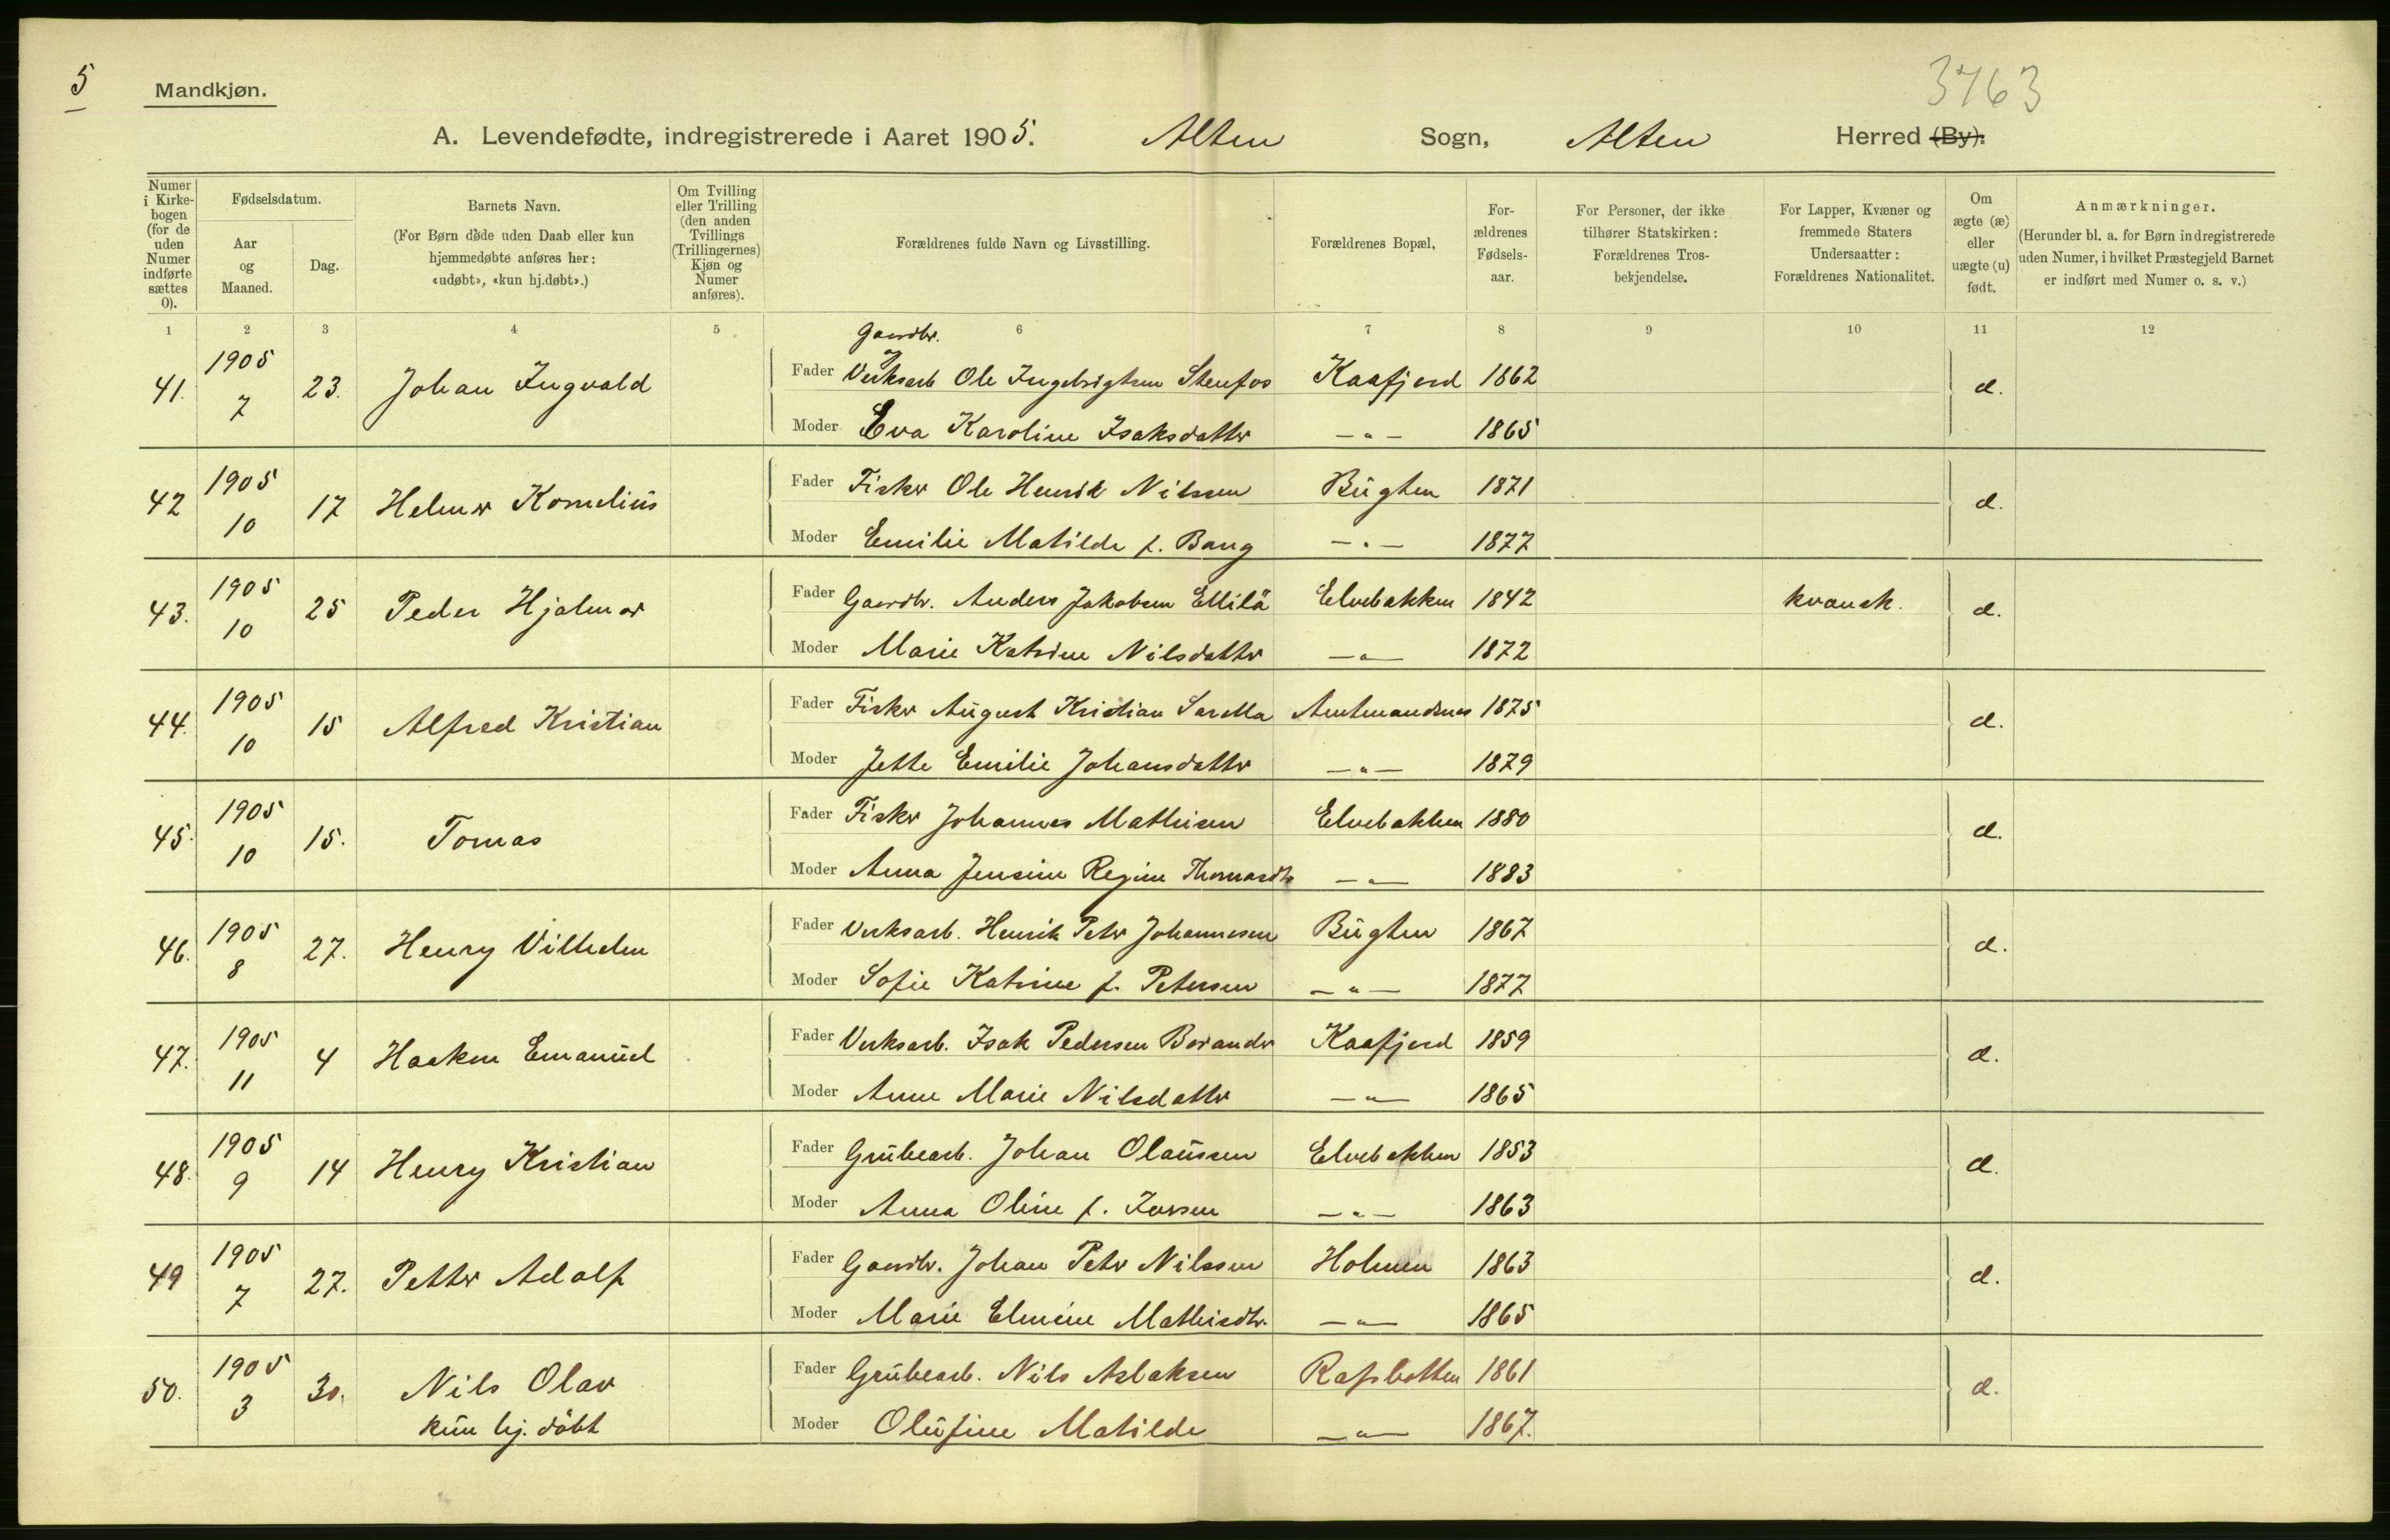 5
Mandkjøn.
3763
A. Levendefødte, indregistrerede i Aaret 1905. Alten Sogn, Alten Herred (By).
Numer i Kirke-bogen (for de uden Numer indførte sættes 0).
Fødselsdatum.
Aar og Maaned.
Dag.
Barnets Navn.
(For Børn døde uden Daab eller kun hjemmedøbte anføres her: «udøbt», «kun hj.døbt».)
Om Tvilling eller Trilling (den anden Tvillings (Trillingernes) Kjøn og Numer anføres).
Forældrenes fulde Navn og Livsstilling.
Forældrenes Bopæl,
For-ældrenes Fødsels-aar.
For Personer, der ikke tilhører Statskirken: Forældrenes Tros-bekjendelse.
For Lapper, Kvæner og fremmede Staters Undersaatter: Forældrenes Nationalitet.
Om ægte (æ) eller uægte (u) født.
Anmærkninger.
(Herunder bl. a. for Børn indregistrerede uden Numer, i hvilket Præstegjeld Barnet er indført med Numer o. s. v.)
1 2 3 4 5 6 7 8 9 10 11 12
Gaardbr.
41. 1905 7 23. Johan Ingvald Fader Verksarb Ole Ingebrigtsen Stenfos Kaafjord 1862 æ.
Moder Eva Karoline Isaksdatter —"— 1865
42 1905 10 17 Helmer Kornelius Fader Fisker Ole Henrik Nilssen Bugten 1871 æ.
Moder Emilie Matilde f. Bang —"— 1877
43. 1905 10 25 Peder Hjalmar Fader Gaardbr. Anders Jakobsen Ellilä Elvebakken 1842 kvænsk. æ.
Moder Marie Katrine Nilsdatter —"— 1872
44. 1905 10 15 Alfred Kristian Fader Fisker August Kristian Sarella Amtmandsnes 1875 æ.
Moder Jette Emilie Johansdatter —"— 1879
45. 1905 10 15. Tomas Fader Fisker Johannes Mathisen Elvebakken 1880 æ.
Moder Anna Jensine Regine Thomasdtr —"— 1883
46. 1905 8 27. Henry Vilhelm Fader Verksarb. Henrik Peter Johannesen Bugten 1867 æ.
Moder Sofie Katrine f. Petersen —"— 1877
47. 1905 11 4 Haakon Emanuel Fader Verksarb. Isak Pedersen Borander Kaafjord 1859 æ.
Moder Anne Marie Nilsdatter —"— 1865
48. 1905 9 14 Henry Kristian Fader Grubearb. Johan Olaussen Elvebakken 1853 æ.
Moder Anna Oline f. Iversen —"— 1863
49 1905 7 27. Petter Adolf Fader Gaardbr. Johan Peter Nilssen Holmen 1863 æ.
Moder Marie Elmine Mathisdtr. —"— 1865
50. 1905 3 30. Nils Olav Fader Grubearb. Nils Aslaksen Rafsbotten 1861 æ.
kun hj. döbt Moder Olufine Matilde —"— 1867.